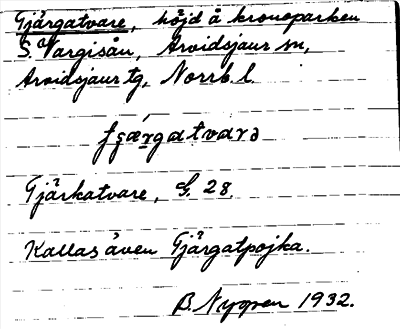 Tjärgatvare, höjd å kronoparken
S. Vargisån, Arvidsjaur sn,
Arvidsjaur tg, Norrb. l.
Tjärkatvare, G. 28.
Kallas även Tjärgatpojka.
B. Nygren 1932.